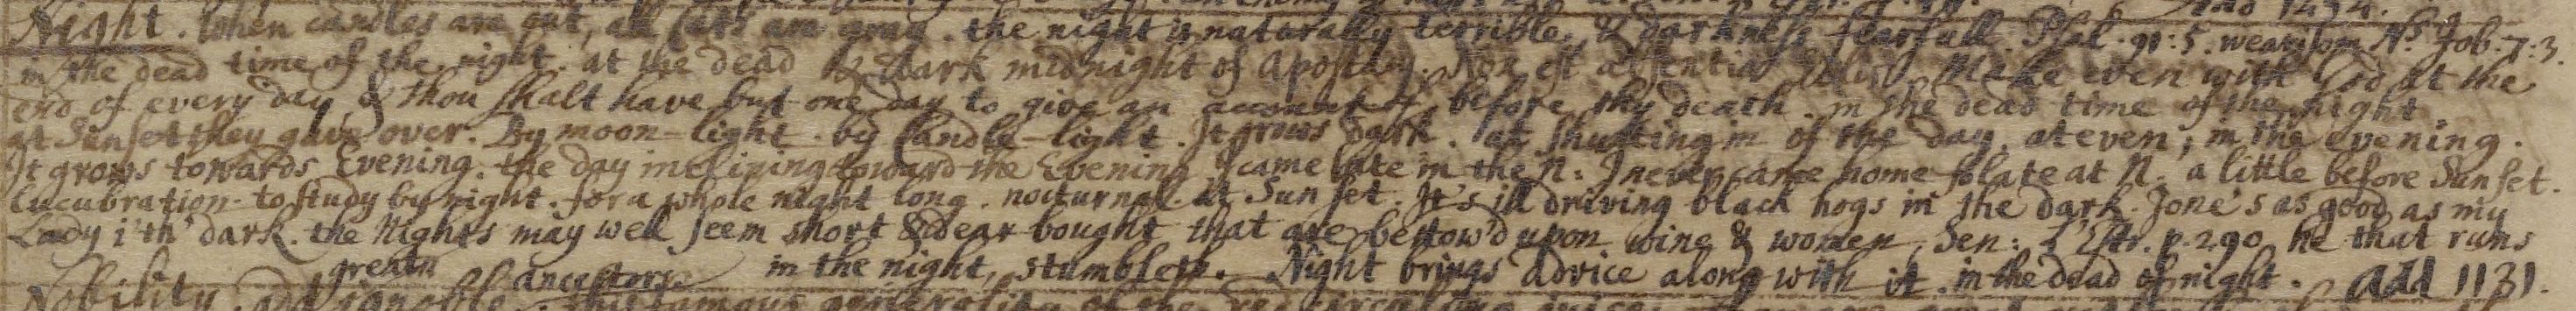 Night. When candles are out, all Cats are gray. the night is naturally terrible, & darkness fearfull. Psal. 91:5. wearysom Ns. Job. 7:3.
in the dead time of the night. at the dead & dark midnight of Apostasy. Non est Make even with God at the
end of every day, & thou shalt have but one day to give an account of before thy death. in the dead time of the night
at Sunset they gave over. By moon-light. by Candle-light. It grows dark. at shutting in of the day. at even, in the evening.
It grows towards Evening. the day inclining toward the Evening I came late in the N: I never came home so late at N. a little before Sunset.
Lucubration. to study by night. for a whole night long. nocturnal. at Sun set. It's ill driving black hogs in the dark. Jone's as good as my
Lady i'th' dark. the Nights may well seem short & dear bought that are bestow'd upon wine & women, Sen: L'Estr. p. 290 he that runs
in the night, stumbleth. Night brings advice along with it. in the dead of night. Add 1131.
great ancestors
Nobility. ignoble.